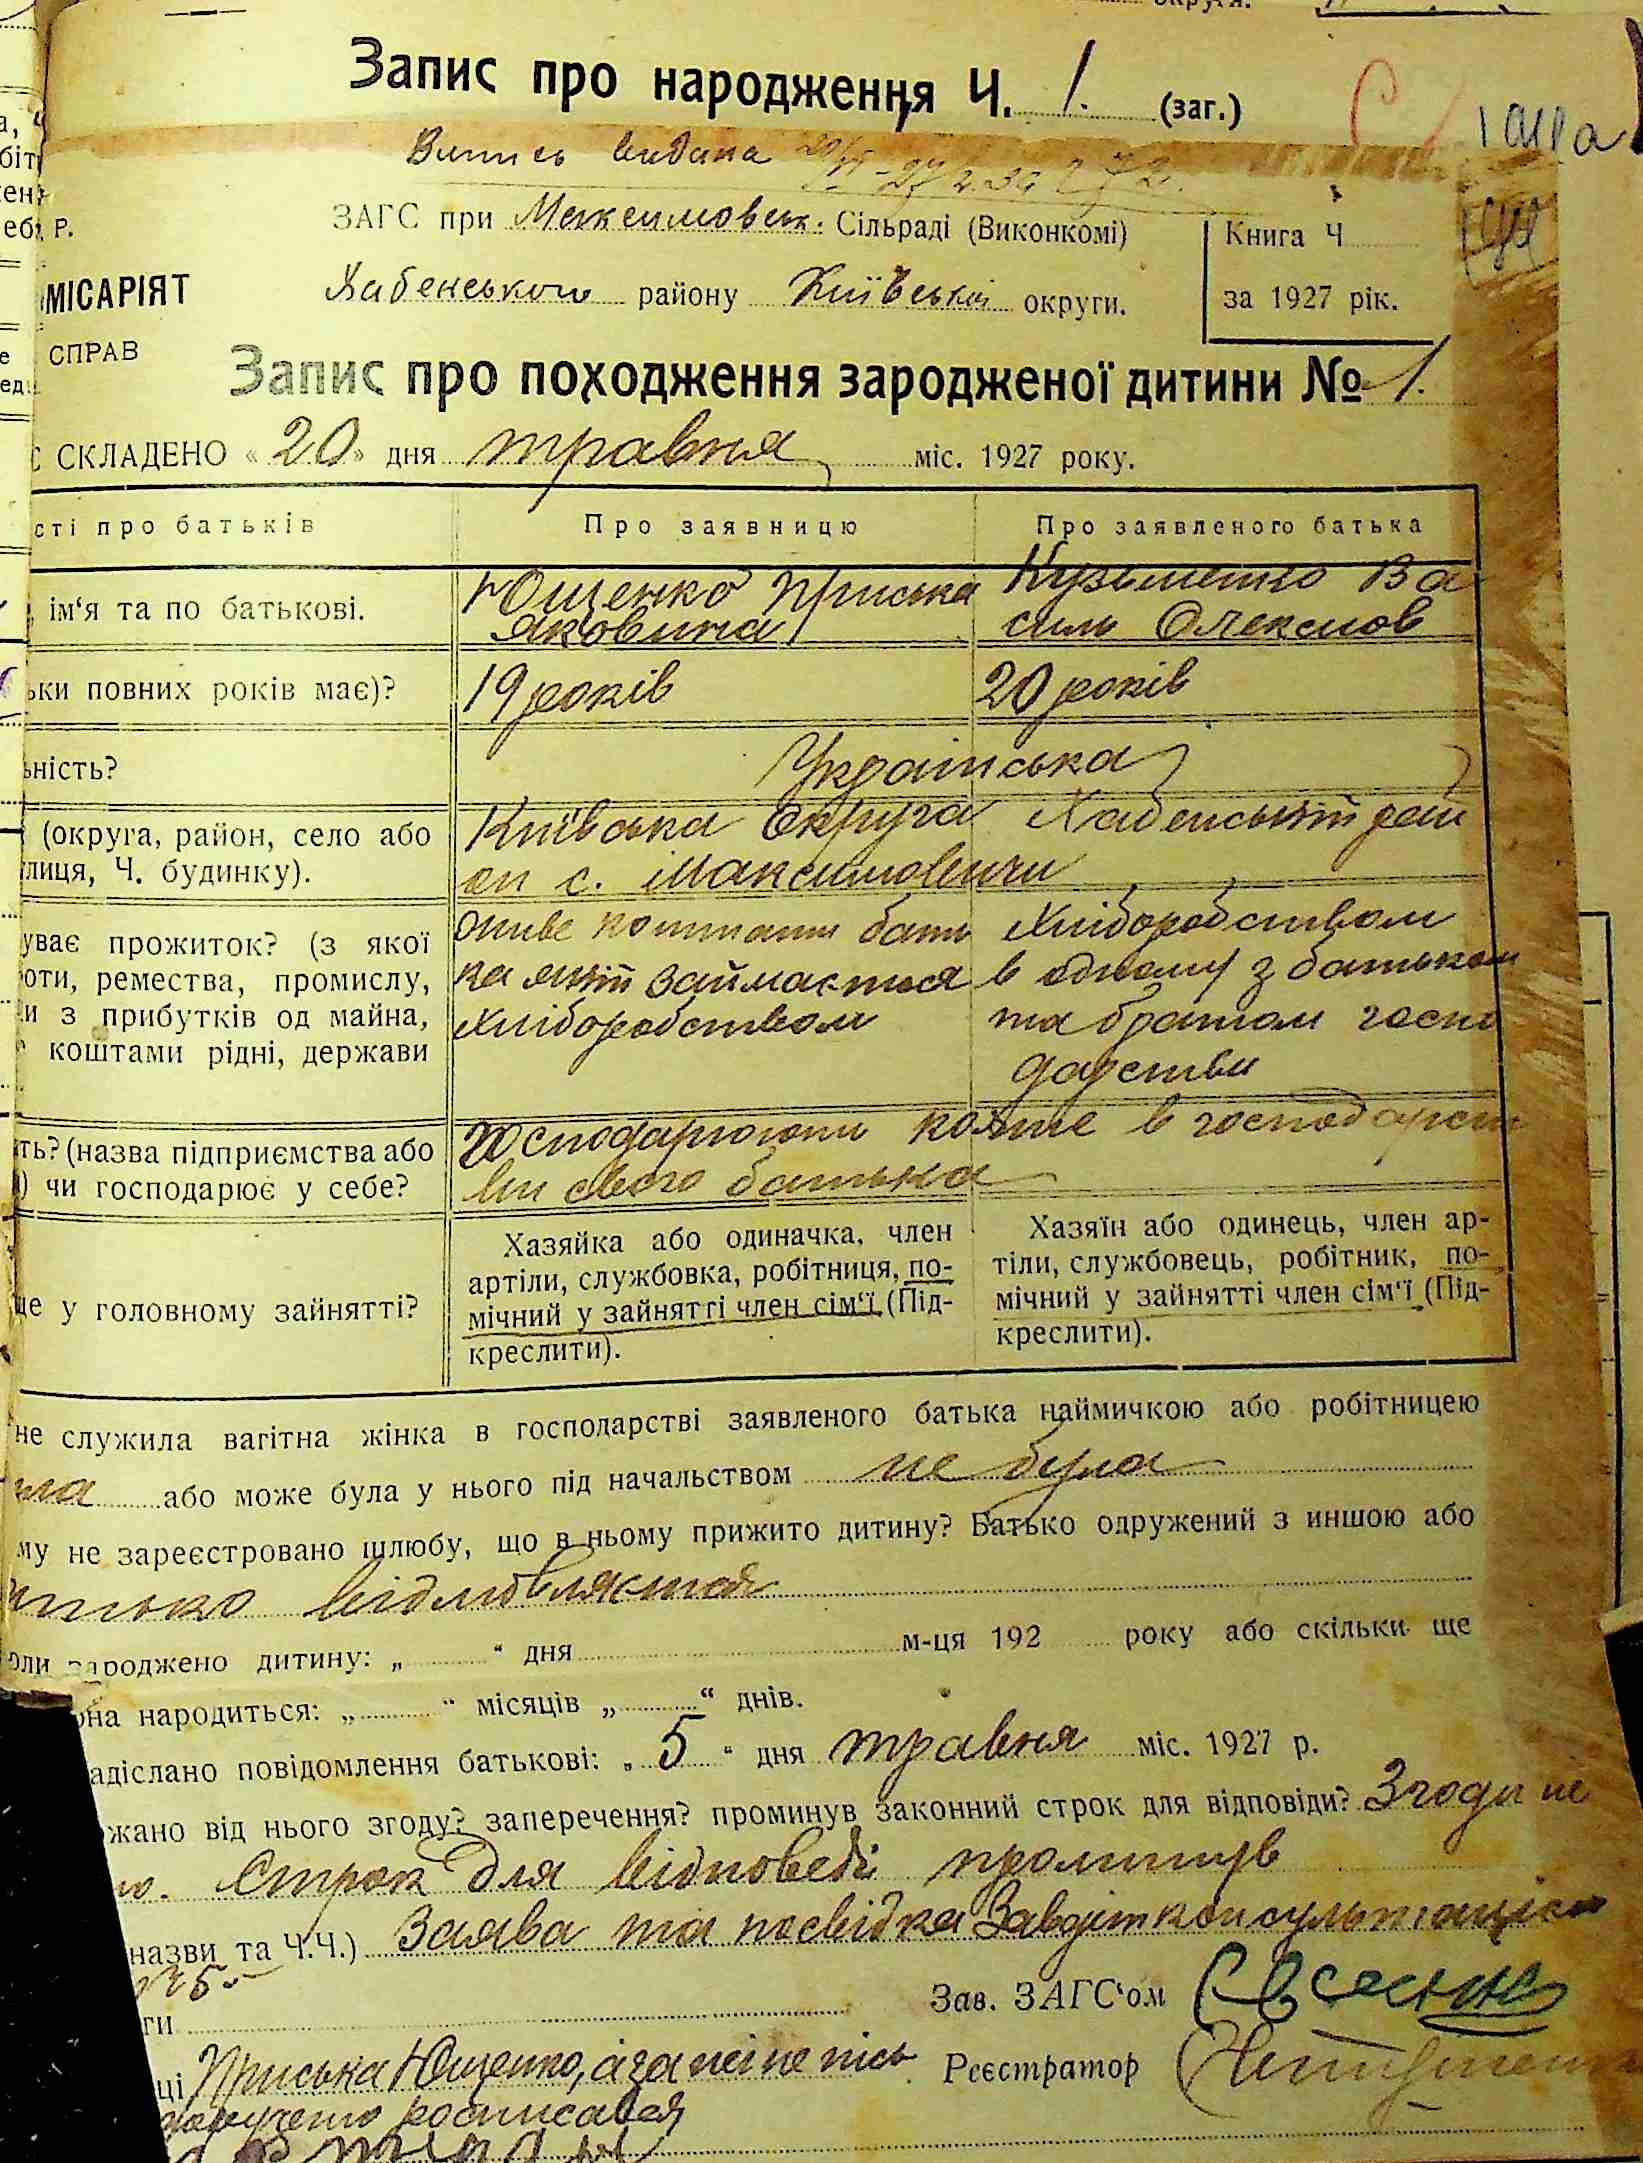 Запис про народження Ч. 1. (заг.)
Випись видана
ЗАГС при Максимовськ. Сільраді (Виконкомі)
Книга Ч
Р.
МІСАРІЯТ
Хабенського району Київської округи.
за 1927 рік.
СПРАВ
Запис про походження зародженої дитини № 1.
СКЛАДЕНО « 20 » дня травня міс. 1927 року.
сті про батьків Про заявницю Про заявленого батька
ім‘я та по батькові. Ющенко Приська Яковина Кузьменко Ва
силь Олексиов
ьки повних років має)? 19 років 20 років
ьність? Українська
(округа, район, село або Київська Округа Хабенський рай
лиця, Ч. будинку). он с. Максимовичи
ує прожиток? (з якої живе коштами бать Хліборобством
оти, ремества, промислу, ка який займається в одному з батьком
и з прибутків од майна, хліборобством та братом госпо
коштами рідні, держави дарстви
ть? (назва підприємства або Господарюють кожне в господарст
) чи господарює у себе? ви свого батька
Хазяйка або одиначка, член Хазяїн або одинець, член ар-
артіли, службовка, робітниця, по- тіли, службовець, робітник, по-
це у головному зайнятті? мічний у зайнятті член сім‘ї (Під- мічний у зайнятті член сім‘ї (Під-
креслити). креслити).
не служила вагітна жінка в господарстві заявленого батька наймичкою або робітницею
ла або може була у нього під начальством не була
му не зареєстровано шлюбу, що в ньому прижито дитину? Батько одружений з иншою або
атько відмовляється
оли зароджено дитину: „ “ дня м-ця 192 року або скільки ще
она народиться: „ “ місяців „ “ днів.
адіслано повідомлення батькові: „ 5 “ дня травня міс. 1927 р.
жано від нього згоду? заперечення? проминув законний строк для відповіди? Згоди не
но. Строк для відповеді проминув
назви та Ч.Ч.) Заява та посвідка Завдітконсультацією
№ 5
Зав. ЗАГС‘ом
ги
ці Приська Ющенко, а за неї не пісь Реєстратор
доручено росписався